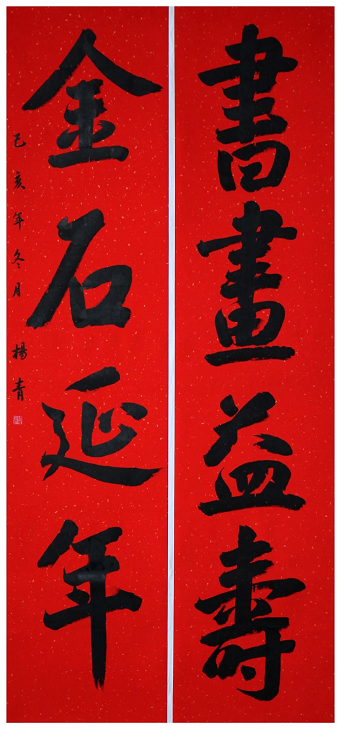 書畫益壽
金石延年
己亥年冬月 楊青